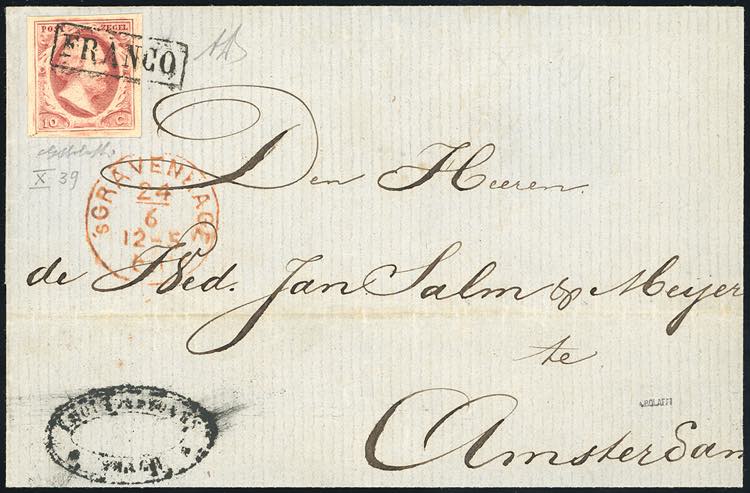 POST ZEGEL
FRANCO
10 C.
X 39
'sGRAVENHAGE
24
6
12-5
Den Heeren
de Wed. Jan Salm & Meijer
te
Amsterdam
BOLAFFI